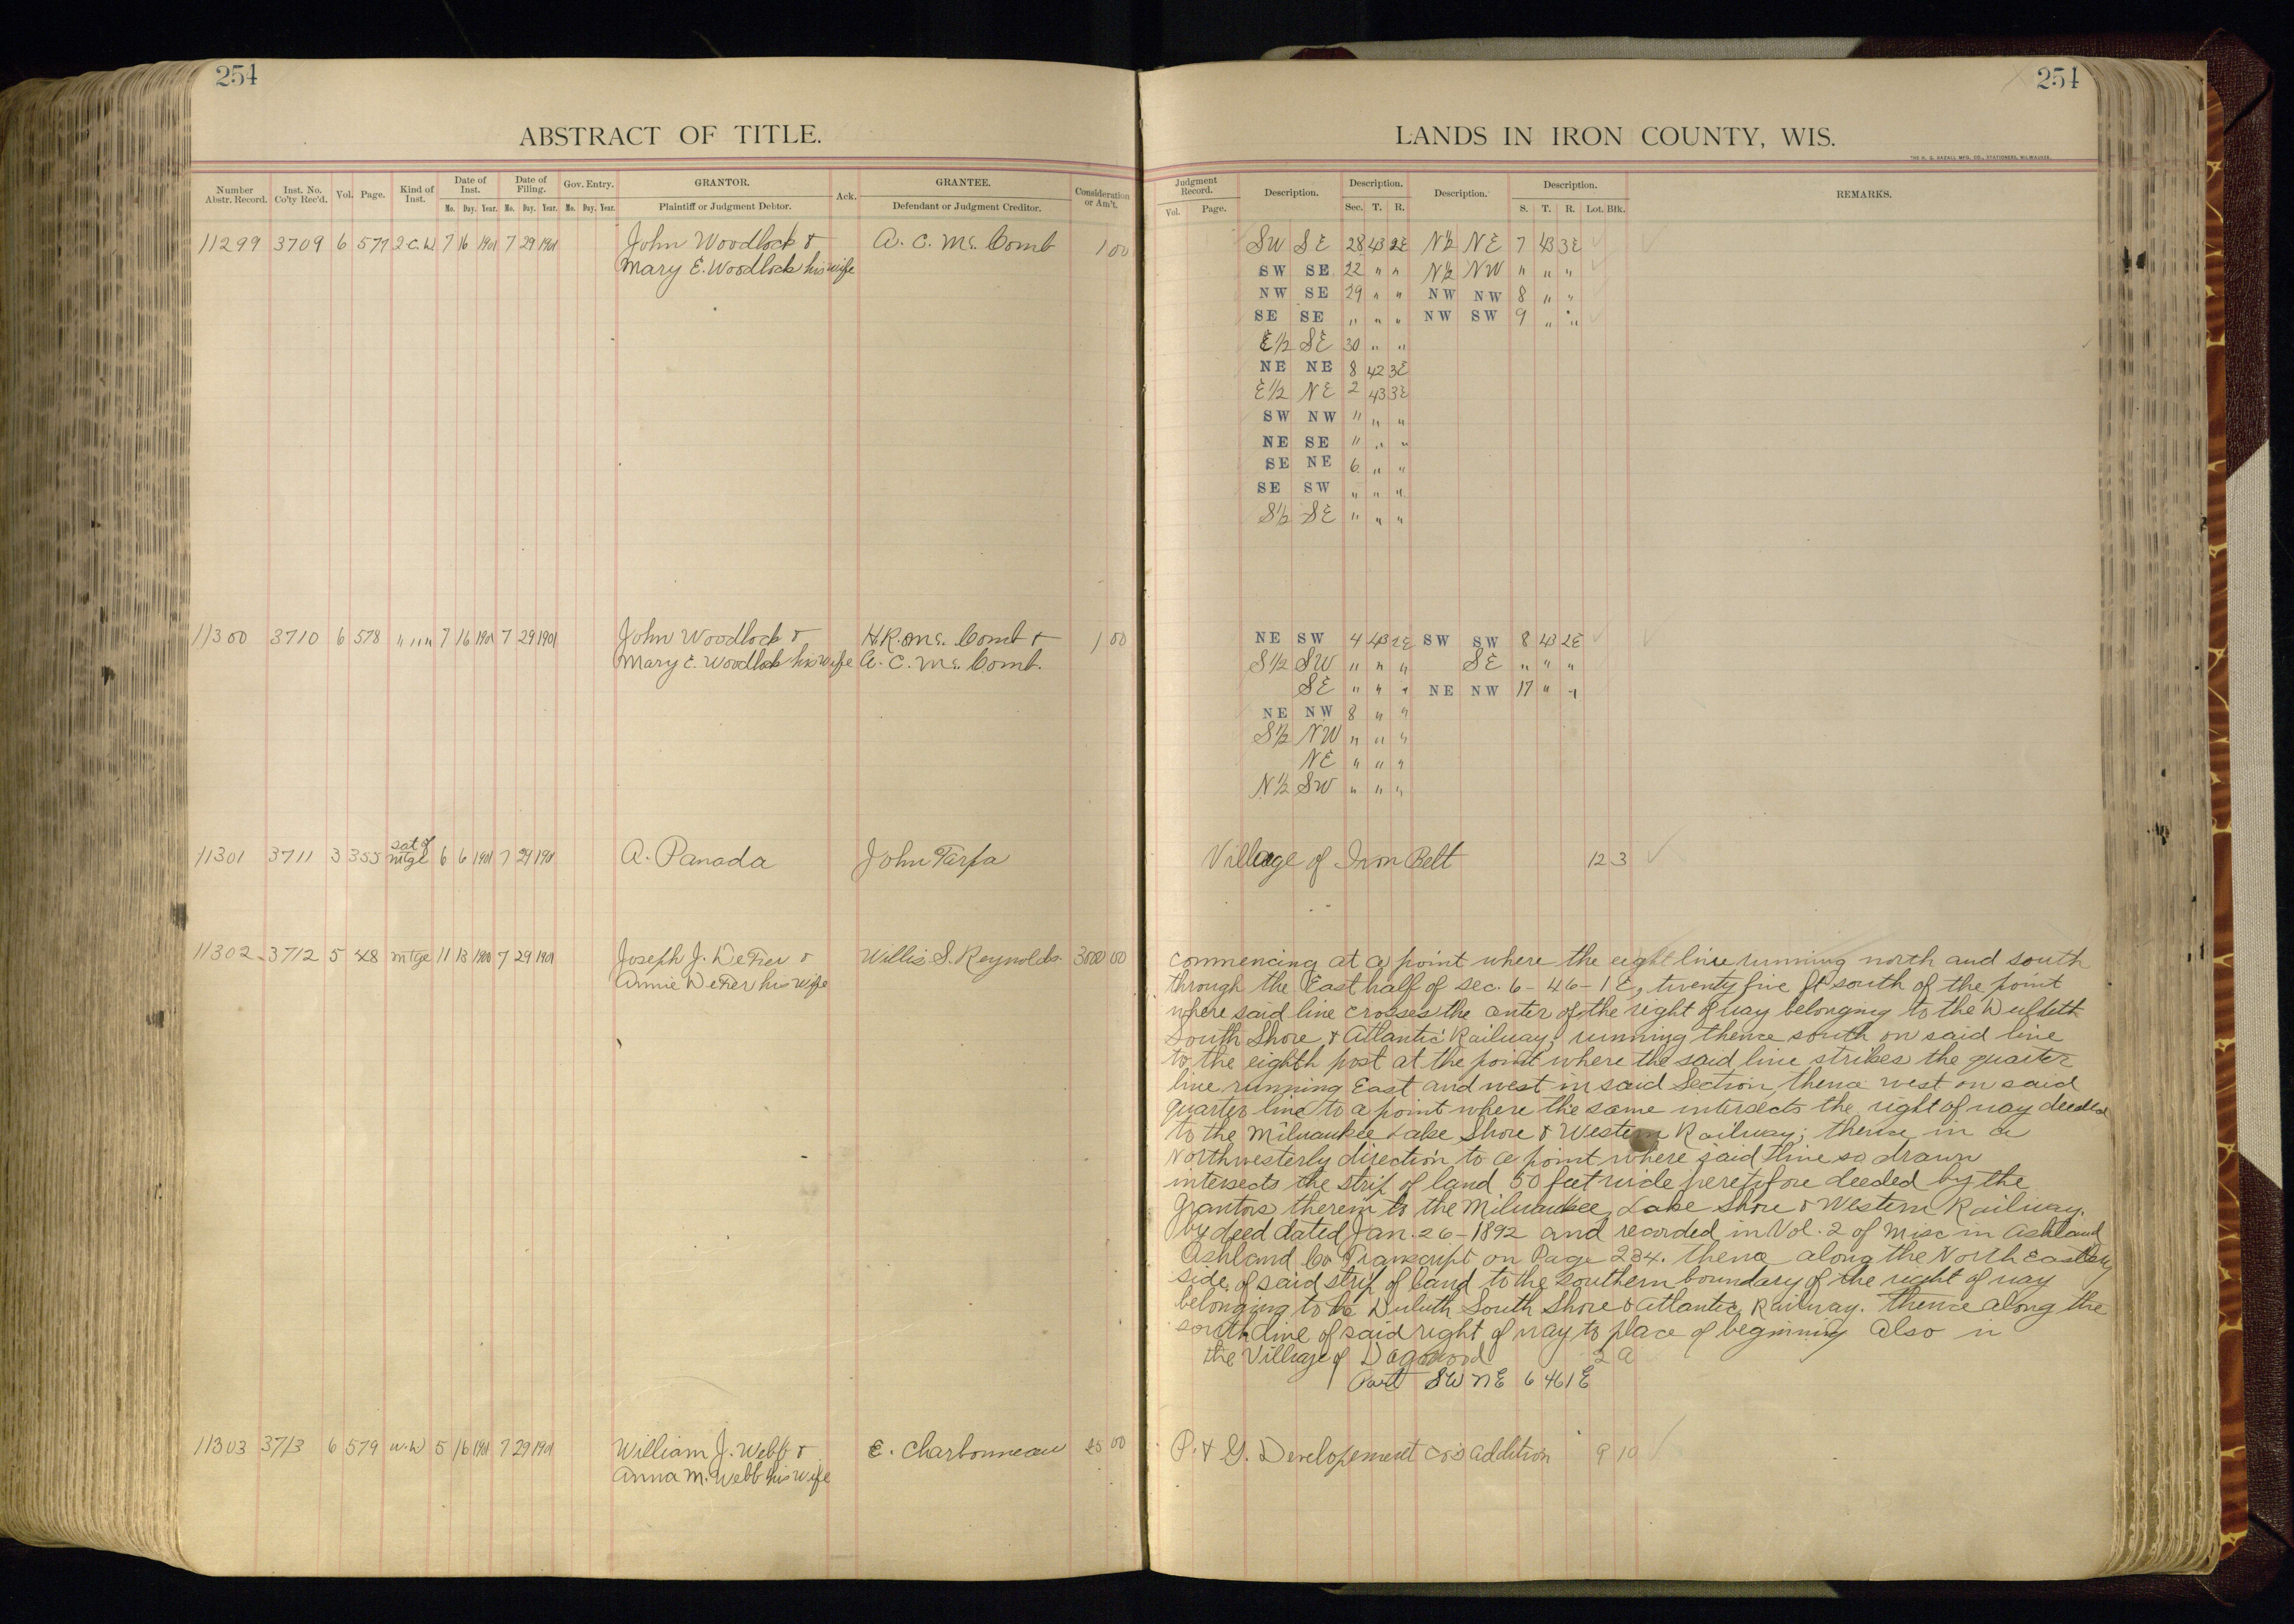 254
ABSTRACT OF TITLE.
Number Abstr. Record. Inst. No. Co'ty Rec'd. Vol. Page. Kind of Inst. Date of Inst. Date of Filing. Gov. Entry. GRANTOR. Ack. GRANTEE. Consideration or Am't.
Mo. Day. Year. Mo. Day. Year. Mo. Day. Year. Plaintiff or Judgment Debtor. Defendant or Judgment Creditor.
11299 3709 6 577 2 C. W 7 16 1901 7 29 1901 John Woodlock & A. C. Mc. Comb 1 00
Mary E. Woodlock his wife
11300 3710 6 578 " " " 7 16 1901 7 29 1901 John Woodlock & H. R. Mc. Comb & 1 00
Mary E. Woodlock his wife A. C. Mc. Comb.
11301 3711 3 355 sat of mtge 6 6 1901 7 29 1901 A. Panada John Tarpa
11302 3712 5 48 mtge 11 13 1900 7 29 1901 Joseph J. DeFer & Willis S. Reynolds. 3000 00
Annie DeFer his wife
11303 3713 6 579 W. D 5 16 1901 7 29 1901 William J. Webb & E. Charbonneau 25 00
Anna M. Webb his wife
254
LANDS IN IRON COUNTY, WIS.
THE H. G. RAZALL MFG. CO., STATIONERS, MILWAUKEE.
Judgment Record. Description. Description. Description. Description. REMARKS.
Vol. Page. Sec. T. R. S. T. R. Lot. Blk.
SW SE 28 43 2E N½ NE 7 43 3E
SW SE 22 " " N½ NW " " "
NW SE 29 " " NW NW 8 " "
SE SE " " " NW SW 9 " "
E½ SE 30 " "
NE NE 8 42 3E
E½ NE 2 43 3E
SW NW " " "
NE SE " " "
SE NE 6 " "
SE SW " " "
S½ SE " " "
NE SW 4 43 2E SW SW 8 43 2E
S½ SW " " " SE " " "
SE " " " NE NW 17 " "
NE NW 8 " "
S½ NW " " "
NE " " "
N½ SW " " "
Village of Iron Belt 12 3
commencing at a point where the eight line running north and south
through the East half of sec. 6-46-1E, twenty five ft south of the point
where said line crosses the center of the right of way belonging to the Duluth
South Shore & Atlantic Railway; running thence south on said line
to the eighth post at the point where the said line strikes the quarter
line running East and west in said Section, thence west on said
quarter line to a point where the same intersects the right of way deeded
to the Milwaukee Lake Shore & Western Railway; thence in a
Northwesterly direction to a point where said line so drawn
intersects the strip of land 50 feet wide heretofore deeded by the
Grantors therein to the Milwaukee, Lake Shore & Western Railway.
by deed dated Jan. 26-1892 and recorded in Vol. 2 of Misc in Ashland
Ashland Co Transcript on Page 234. thence along the North Easterly
side of said strip of land to the southern boundary of the right of way
belonging to he Duluth South Shore & Atlantic Railway. Thence along the
south line of said right of way to place of beginning also in
the Village of Dogwood 2 a
Part SW NE 6 46 1E
P. & G. Developement Co's addition 9 10